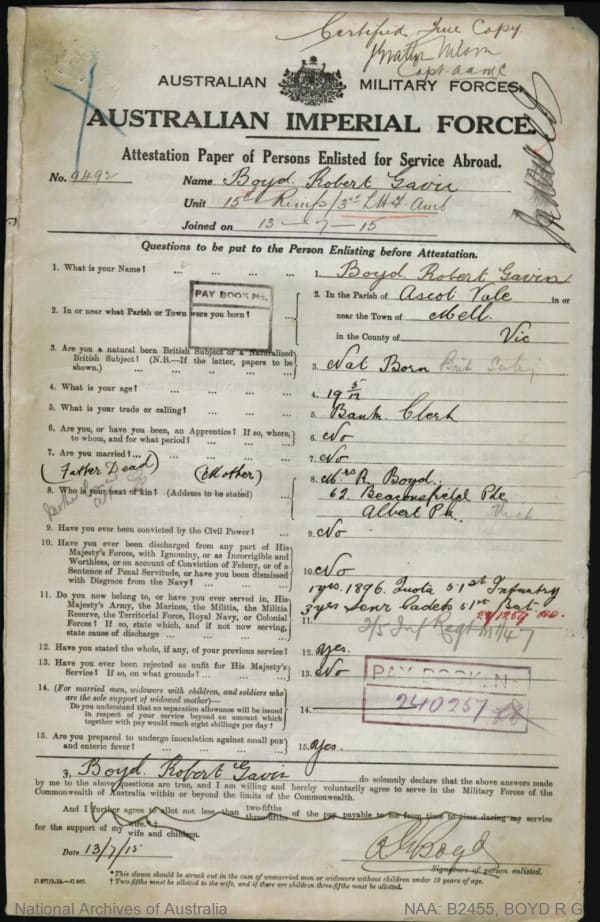 Certified True Copy
Capt. AAMC
AUSTRALIAN MILITARY FORCES.
AUSTRALIAN IMPERIAL FORCE.
Attestation Paper of Persons Enlisted for Service Abroad.
No. 9492
Name Boyd Robert Gavin
Unit 15th Rmfs/3rd L.H.F. Amb
Joined on 13-7-15
Questions to be put to the Person Enlisting before Attestation.
1. What is your Name? ... ... ... ...
1. Boyd Robert Gavin
PAY BOOK No.
2. In or near what Parish or Town were you born? ...
2. In the Parish of Ascot Vale in or
near the Town of Melb.
in the County of Vic
3. Are you a natural born British Subject or a Naturalized
British Subject? (N.B.—If the latter, papers to be
shown.) ... ... ... ...
3. Nat Born
4. What is your age? ... ... ... ...
4. 19 5/12
5. What is your trade or calling? ... ... ...
5. Bank Clerk
6. Are you, or have you been, an Apprentice? If so, where,
to whom, and for what period? ... ... ...
6. No
7. Are you married? ... ... ... ...
7. No
(Father Dead) (Mother)
8. Who is your next of kin? (Address to be stated) ...
8. Mrs R. Boyd.
62 Beaconsfield Pde
Albert Pk. Vict
9. Have you ever been convicted by the Civil Power? ...
9. No
10. Have you ever been discharged from any part of His
Majesty's Forces, with Ignominy, or as Incorrigible and
Worthless, or on account of Conviction of Felony, or of a
Sentence of Penal Servitude, or have you been dismissed
with Disgrace from the Navy? ... ... ...
10. No
11. Do you now belong to, or have you ever served in, His
Majesty's Army, the Marines, the Militia, the Militia
Reserve, the Territorial Force, Royal Navy, or Colonial
Forces? If so, state which, and if not now serving,
state cause of discharge ... ... ...
1 yrs. 1896. Quota 51st Infantry
3 yrs Senr Cadets 51st Bat
11.
12. Have you stated the whole, if any, of your previous service?
12. Yes.
13. Have you ever been rejected as unfit for His Majesty's
Service? If so, on what grounds? ... ...
13. No
PAY BOOK. No.
240257
14. (For married men, widowers with children, and soldiers who
are the sole support of widowed mother—
Do you understand that no separation allowance will be issued
in respect of your service beyond an amount which
together with pay would reach eight shillings per day?
14.
15. Are you prepared to undergo inoculation against small pox
and enteric fever? ... ... ... ...
15. Yes.
I, Boyd Robert Gavin do solemnly declare that the above answers made
by me to the above questions are true, and I am willing and hereby voluntarily agree to serve in the Military Forces of the
Commonwealth of Australia within or beyond the limits of the Commonwealth.
And I further agree to allot not less than two-fifths
three-fifths of the pay payable to me from time to time during my service
for the support of my wife.†
wife and children.
Date 13/7/15
R G Boyd
Signature of person enlisted.
*This clause should be struck out in the case of unmarried men or widowers without children under 18 years of age.
†Two-fifths must be allotted to the wife, and if there are children three-fifths must be allotted.
National Archives of Australia
NAA: B2455, BOYD R G